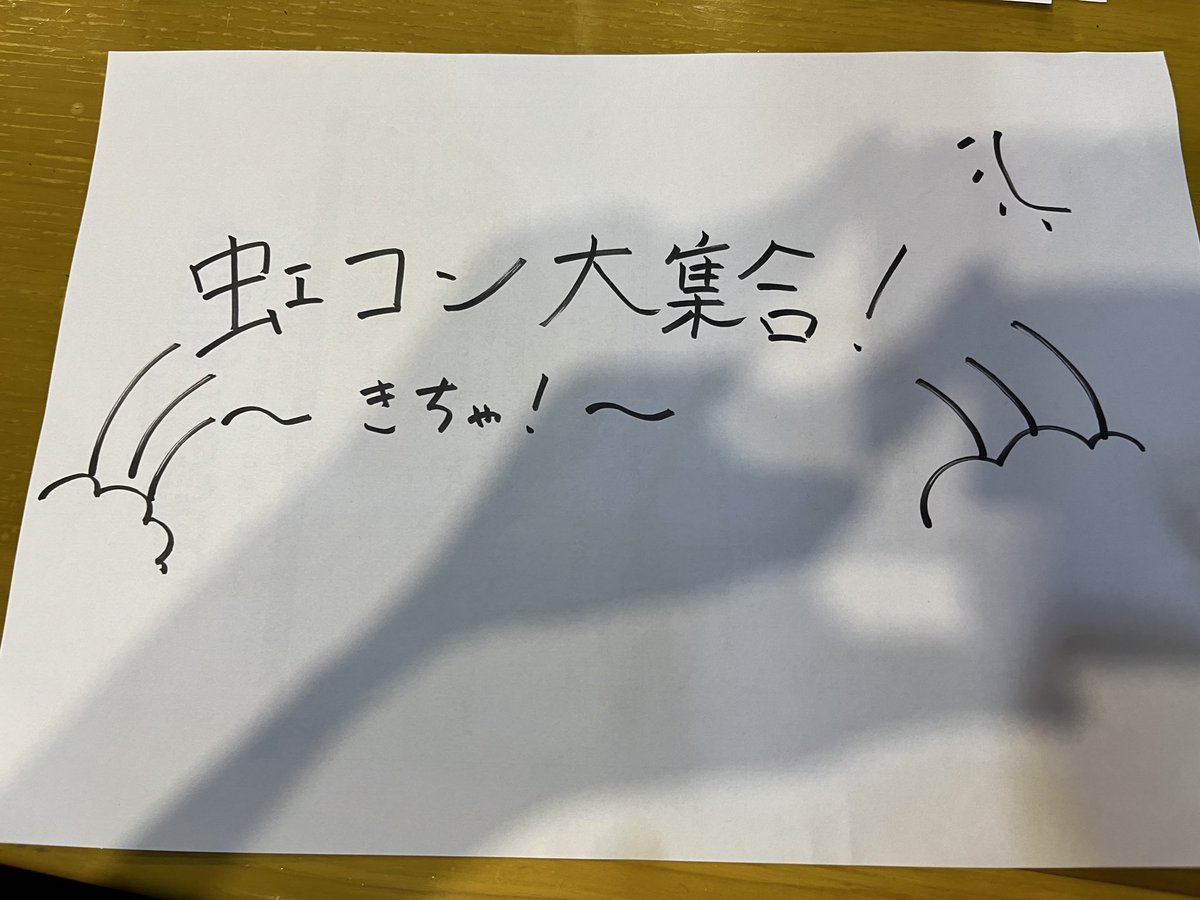 虹コン大集合!
〜きちゃ!〜